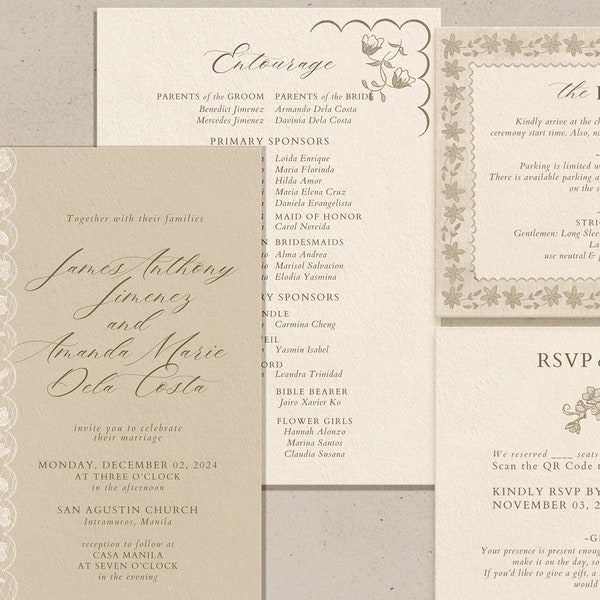 Together with their families
James Anthony
Jimenez
and
Amanda Marie
Dela Costa
invite you to celebrate
their marriage
MONDAY, DECEMBER 02, 2024
AT THREE O'CLOCK
in the afternoon
SAN AGUSTIN CHURCH
Intramuros, Manila
reception to follow at
CASA MANILA
AT SEVEN O'CLOCK
in the evening
Entourage
PARENTS of the GROOM PARENTS of the BRIDE
Benedict Jimenez Armando Dela Costa
Mercedes Jimenez Davinia Dela Costa
PRIMARY SPONSORS
Loida Enrique
Maria Florinda
Hilda Amor
Maria Elena Cruz
Daniela Evangelista
MAID OF HONOR
Carol Nereida
BRIDESMAIDS
Alma Andrea
Marisol Salvacion
Elodia Yasmina
SPONSORS
Carmina Cheng
Yasmin Isabel
Leandra Trinidad
BIBLE BEARER
Jairo Xavier Ko
FLOWER GIRLS
Hannah Alonzo
Marina Santos
Claudia Susana
the
Kindly arrive at the
ceremony start time. Also,
Parking is limited
There is available parking
on the
Gentlemen: Long
use neutral &
RSVP
We reserved ____ seats
Scan the QR Code
KINDLY RSVP BY
NOVEMBER 03,
Your presence is present
make it on the day,
If you'd like to give a gift, a
would